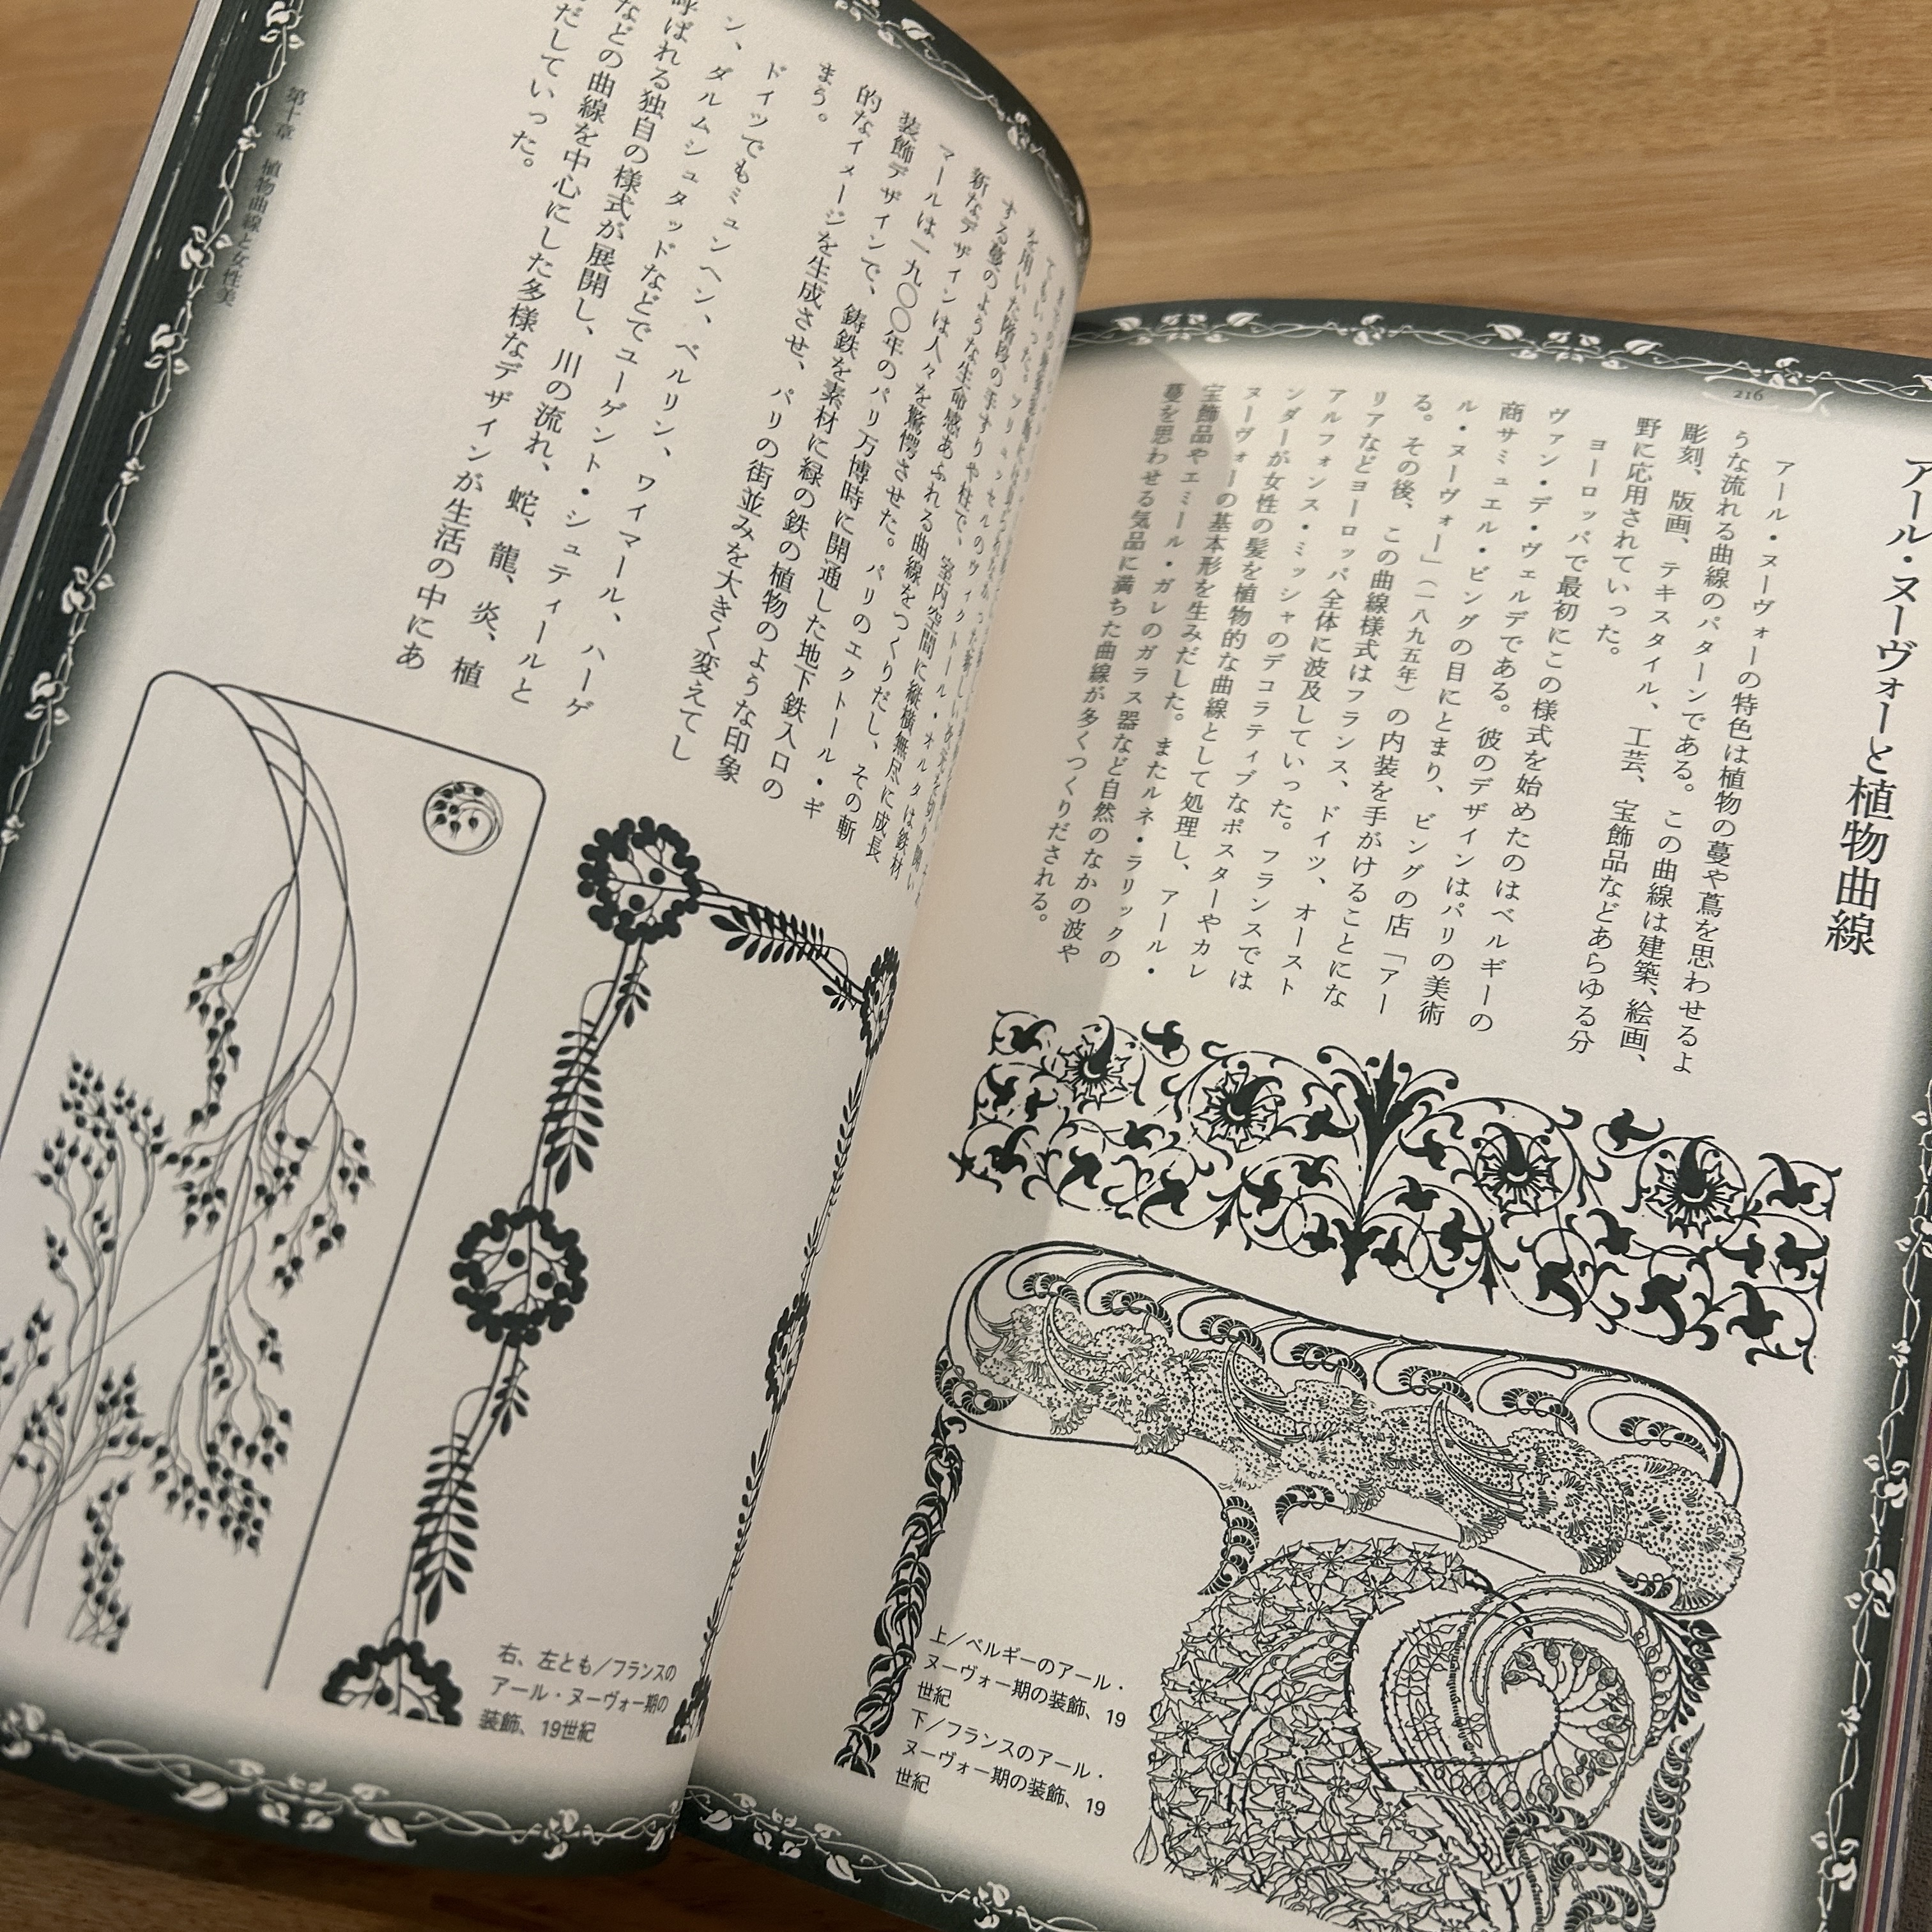 216
アール・ヌーヴォーと植物曲線
アール・ヌーヴォーの特色は植物の蔓や蔦を思わせるよ
うな流れる曲線のパターンである。この曲線は建築、絵画、
彫刻、版画、テキスタイル、工芸、宝飾品などあらゆる分
野に応用されていった。
ヨーロッパで最初にこの様式を始めたのはベルギーの
ヴァン・デ・ヴェルデである。彼のデザインはパリの美術
商サミュエル・ビングの目にとまり、ビングの店「アー
ル・ヌーヴォー」（一八九五年）の内装を手がけることにな
る。その後、この曲線様式はフランス、ドイツ、オースト
リアなどヨーロッパ全体に波及していった。フランスでは
アルフォンス・ミッシャのデコラティブなポスターやカレ
ンダーが女性の髪を植物的な曲線として処理し、アール・
ヌーヴォーの基本形を生みだした。またルネ・ラリックの
宝飾品やエミール・ガレのガラス器など自然のなかの波や
蔓を思わせる気品に満ちた曲線が多くつくりだされる。
上／ベルギーのアール・
ヌーヴォー期の装飾、19
世紀
下／フランスのアール・
ヌーヴォー期の装飾、19
世紀
を用いた階段の手すりや柱で、室内空間に縦横無尽に成長
する蔓のような生命感あふれる曲線をつくりだし、その斬
新なデザインは人々を驚愕させた。パリのエクトール・ギ
マールは一九〇〇年のパリ万博時に開通した地下鉄入口の
装飾デザインで、鋳鉄を素材に緑の鉄の植物のような印象
的なイメージを生成させ、パリの街並みを大きく変えてし
まう。
ドイツでもミュンヘン、ベルリン、ワイマール、ハーゲ
ン、ダルムシュタッドなどでユーゲント・シュティールと
呼ばれる独自の様式が展開し、川の流れ、蛇、龍、炎、植
などの曲線を中心にした多様なデザインが生活の中にあ
だしていった。
右、左とも／フランスの
アール・ヌーヴォー期の
装飾、19世紀
第十章　植物曲線と女性美